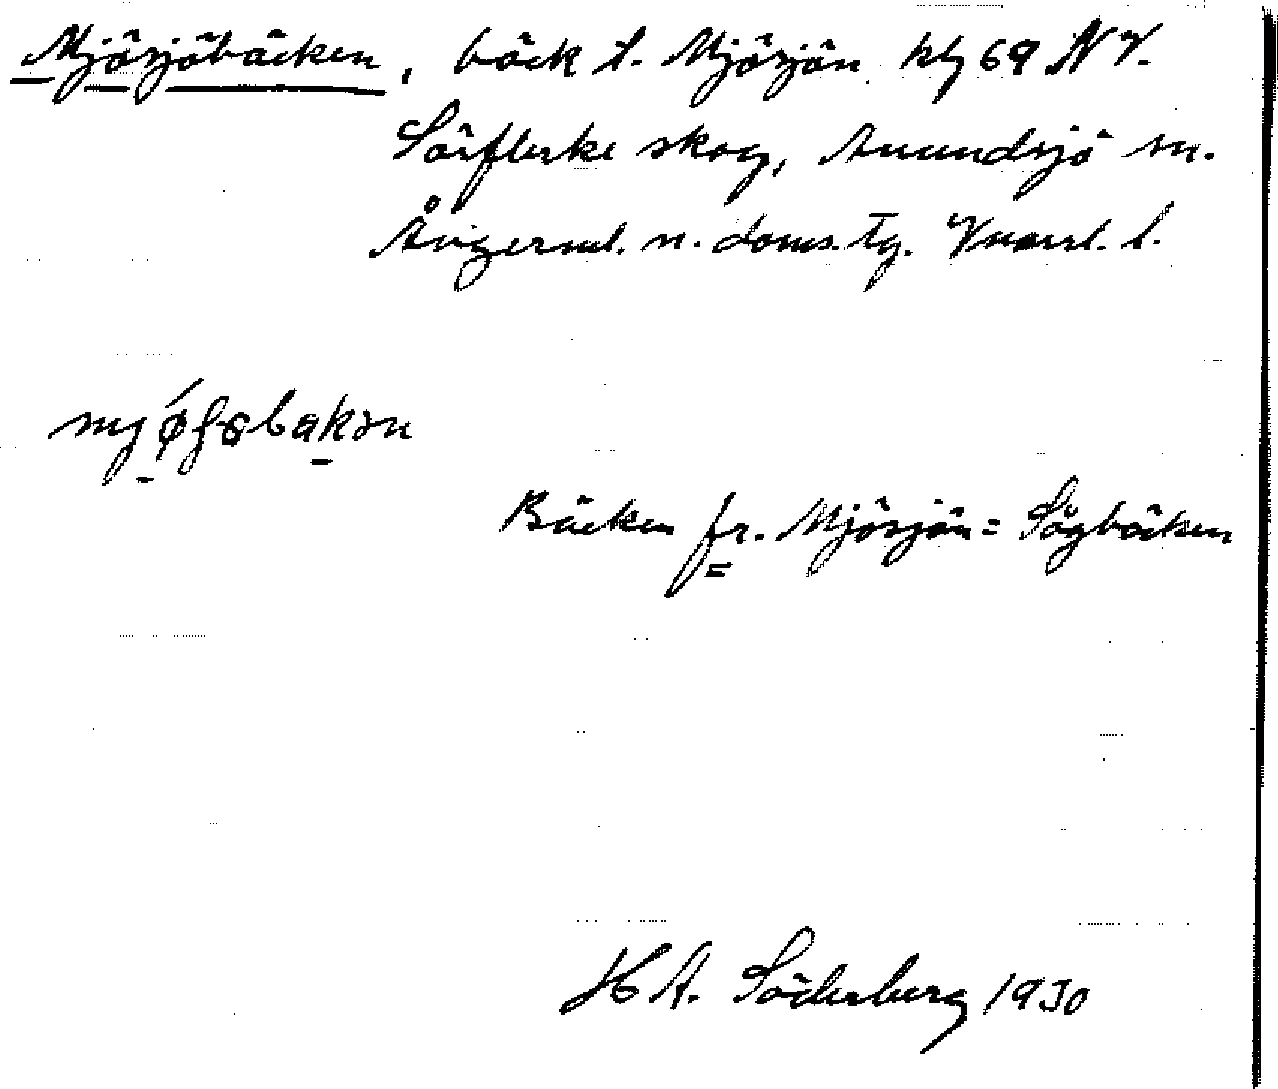 Mjösjöbäcken, bäck t. Mjösjön kbl 69 NV.
Sörflerke skog, Anundsjö sn.
Ångerml. n. doms. tg. Vnorrl. l.
Bäcken fr. Mjösjön = Sågbäcken
H A. Söderberg 1930